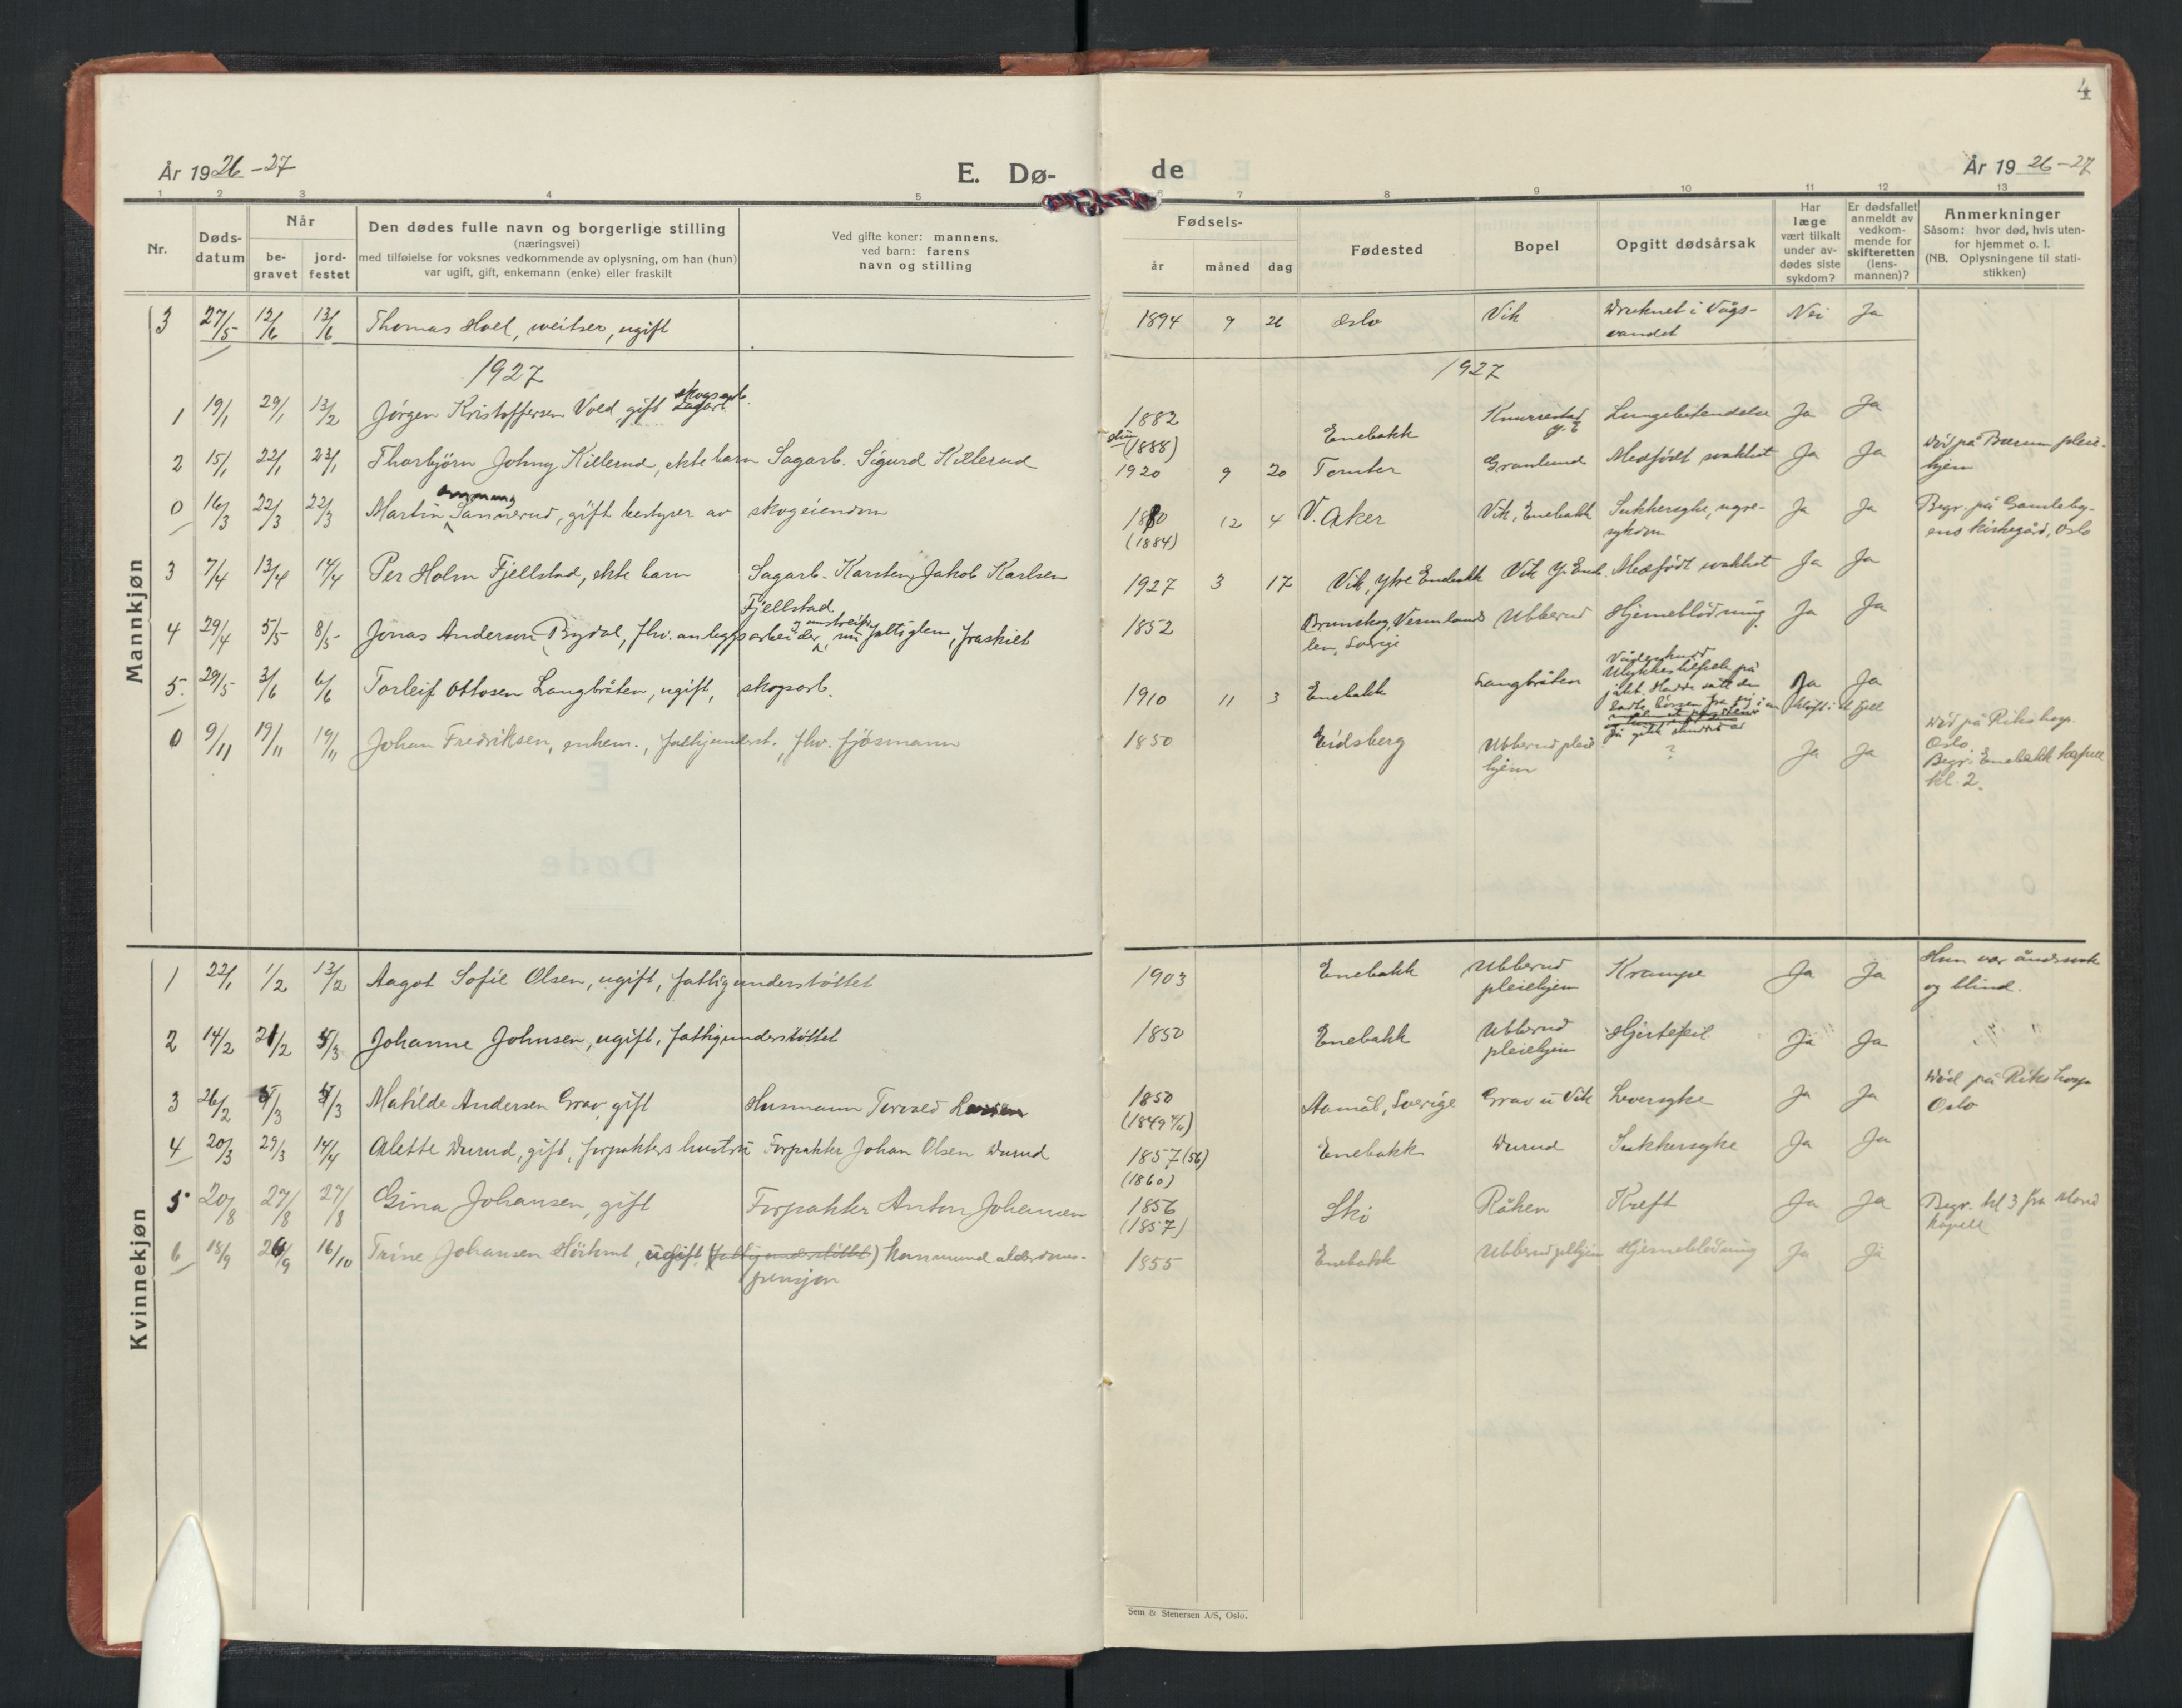 4
År 1926-27
E. Dø-
de
År 1926-27
1 2 3 4 5 6 7 8 9 10 11 12 13
Nr.
Døds-
datum
Når
be-
gravet
jord-
festet
Den dødes fulle navn og borgerlige stilling
(næringsvei)
med tilføielse for voksnes vedkommende av oplysning, om han (hun)
var ugift, gift, enkemann (enke) eller fraskilt
Ved gifte koner: mannens,
ved barn: farens
navn og stilling
Fødsels-
år måned dag
Fødested
Bopel
Opgitt dødsårsak
Har
læge
vært tilkalt
under av-
dødes siste
sykdom?
Er dødsfallet
anmeldt av
vedkom-
mende for
skifteretten
(lens-
mannen)?
Anmerkninger
Såsom: hvor død, hvis uten-
for hjemmet o. l.
(NB. Oplysningene til stati-
stikken)
Mannkjøn
3 27/5 12/6 13/6 Thomas Hoel, ugift 1894 9 26 Oslo Vik Druknet i Vågs- Nei Ja
vandet
1927 1927
skogsarb.
1 19/1 29/1 13/2 Jørgen Kristoffersen Vold, gift 1882 Enebakk Knurrestad Lungebetendelse Ja Ja
Y. E
(1888)
2 15/1 22/1 23/1 Thorbjörn Johny Killerud, ekte barn Sagarb. Sigurd Killerud 1920 9 20 Tomter Granlund Medfödt svakhet Ja Ja Död på Bærum pleie-
hjem
0 16/3 22/3 22/3 Martin Sannerud, gift bestyrer av skogeiendom 1880 12 4 V. Aker Vik, Enebakk Sukkersyke, nyre- Ja Ja Begr. på Gamleby-
(1884) sykdom ens kirkegård, Oslo
3 7/4 13/4 14/4 Per Holm Fjellstad, ekte barn Sagarb. Karsten Jakob Karlsen 1927 3 17 Vik, Ytre Enebakk Vik Y. Eneb. Medfödt svakhet Ja Ja
Fjellstad
og omstreifer
4 29/4 5/5 8/5 Jonas Anderson Bydal, fhv. anleggsarbeider, nu fattiglem, fraskilt 1852 Brunskog, Vermlands Ubberud Hjerneblödning Ja Ja
len, Sverige
Vådeskudd
Ulykkestilfelle på
5. 29/5 3/6 6/6 Torleif Ottosen Langbråten, ugift, skogsarb. 1910 11 3 Enebakk Langbråten jakt. Hadde satt den Ja Ja
ladte börsen fra sig i en klöft i et fjell
Så gikk skuddet av
0 9/11 19/11 19/11 Johan Fredriksen, enkem., fattigunderst., fhv. fjösmann 1850 Eidsberg Ubberud pleie ? Ja Ja Död på Rikshosp.
hjem Oslo.
Begr. i Enebakk kapell
kl. 2.
Kvinnekjøn
1 22/1 1/2 13/2 Aagot Sofie Olsen, ugift, fattigunderstöttet 1903 Enebakk Ubberud Krampe Ja Ja Hun var åndssvak
pleiehjem og blind.
2 14/2 21/2 5/3 Johanne Johnsen, ugift, fattigunderstöttet 1850 Enebakk Ubberud Hjertefeil Ja Ja " "
pleiehjem
3 26/2 5/3 5/3 Matilde Andersen Grav, gift Husmann Larsen 1850 Aamål, Sverige Grav u Vik Leversyke Ja Ja Död på Rikshosp
(1849 4/11) Oslo
4 20/3 29/3 14/4 Alette Durud, gift, forpakters hustru Forpakter Johan Olsen Durud 1857 (56) Enebakk Durud Sukkersyke Ja Ja
(1860)
5 20/8 27/8 27/8 Gina Johansen, gift Forpakter Anton Johansen 1856 Ski Råken Kreft Ja Ja Begr. kl 3 fra
(1857) kapell
6 18/9 26/9 16/10 Trine Johansen, ugift (fattigunderstöttet) kommunal alderdoms- 1855 Enebakk Ubberud plhjem Hjerneblödning Ja Ja
pensjon
Sem & Stenersen A/S, Oslo.